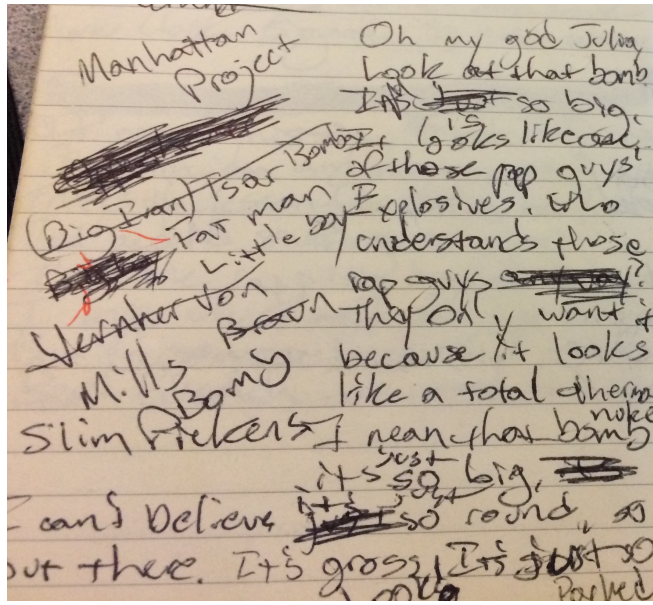 Manhattan
Project
(Big Ivan) Tsar Bomba
Fat man
Little boy
Vernher Von
Braun
Mills
Bomb
Slim Pickens
Oh my god Julia
Look at that bomb
so big.
It looks like one
of those pop guys'
Explosives. who
understands those
rap guys ?
They only want it
because it looks
like a total thermo
nuke
I mean that bomb
it's just so big,
I can't believe it's just so round, so
out there. It's gross, It's just so
looks Parked